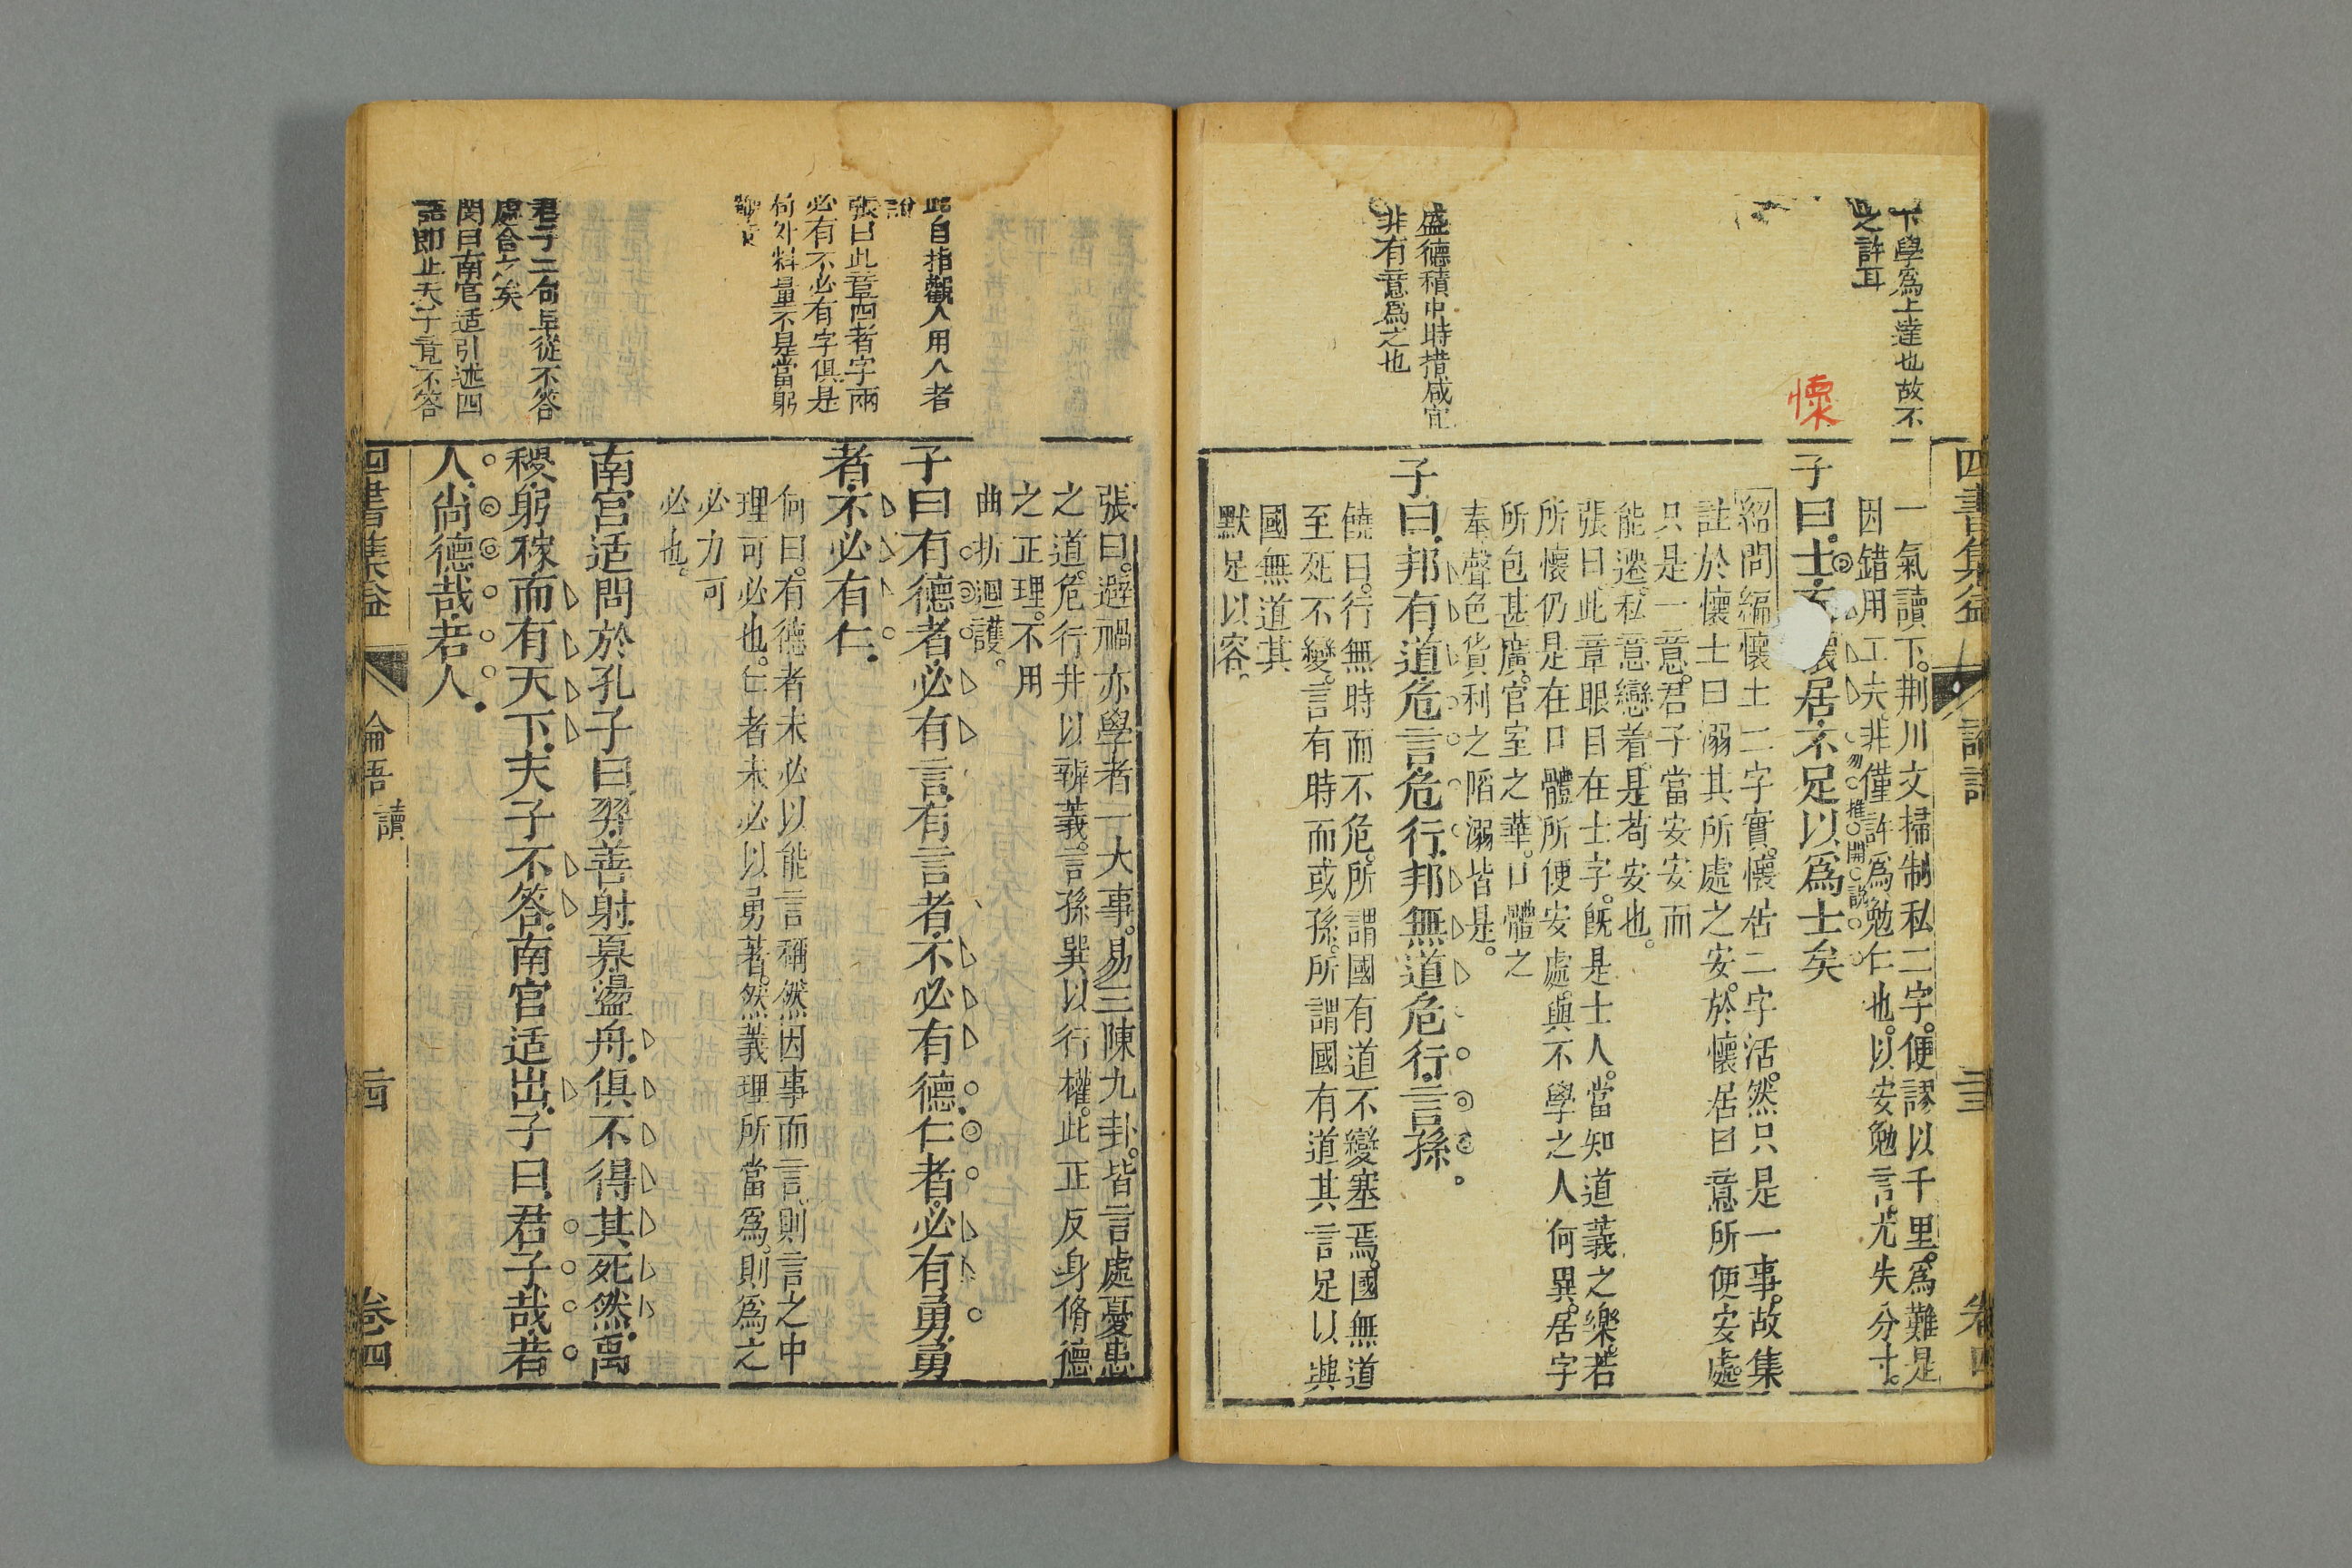 下學爲上達也故不
之許耳
懷
盛德積中時措咸宜
非有意爲之也
四書集益
論語
三
卷四
一氣讀下。荆川文掃制私二字。便謬以千里。爲難是
因錯用工夫。非僅許爲勉仁也。以安勉言。尤失分寸。
勿推開説
子曰。士懷居。不足以爲士矣
紹聞編懷土二字實。懷居二字活。然只是一事。故集
註於懷土曰溺其所處之安。於懷居曰意所便安處。
只是一意。君子當安安而
能遷。私意戀着。是苟安也。
張曰。此章眼目在士字。旣是士人。當知道義之樂。若
所懷仍是在口體所便安處。與不學之人何異。居字
所包甚廣。宮室之華。口體之
奉。聲色貨利之陷溺皆是。
子曰。邦有道。危言危行。邦無道。危行言孫。
饒曰。行無時而不危。所謂國有道不變塞焉。國無道
至死不變。言有時而或孫。所謂國有道其言足以興
國無道其
默足以容。
此自指觀人用人者
說
張曰此章四者字兩
必有不必有字俱是
向外料量不是當躬
君子二句卓從不答
處合之矣
閔曰南宮适引述四
語即止夫子竟不答
張曰。避禍亦學者一大事。易三陳九卦。皆言處憂患
之道。危行井以辨義。言孫巽以行權。此正反身脩德
之正理。不用
曲折迴護。
子曰。有德者必有言。有言者不必有德。仁者必有勇。勇
者不必有仁。
何曰。有德者未必以能言稱。然因事而言。則言之中
理可必也。仁者未必以勇著。然義理所當爲。則爲之
必力可
必也。
南宮适問於孔子曰。羿善射。奡盪舟。俱不得其死然。禹
稷躬稼而有天下。夫子不答。南宮适出。子曰。君子哉若
人。尚德哉若人。
四書集益
論語
讀
卷四